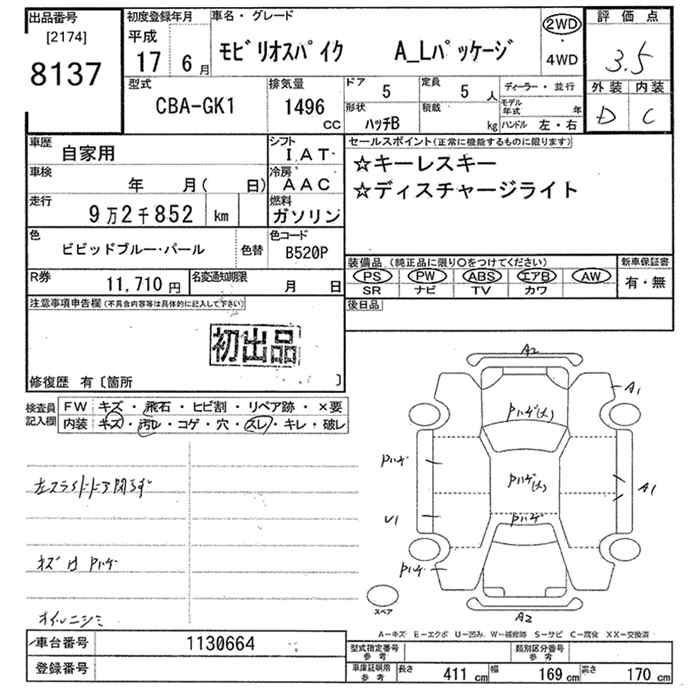 出品番号
[2174]
8137
初度登録年月
平成
17 6月
車名・グレード
モビリオスパイク A_Lパッケージ
2WD
・
4WD
評価点
3.5
外装 内装
D C
型式
CBA-GK1
排気量
1496
CC
ドア
5
定員
5 人
形状
ハッチB
積載
kg
ディーラー・並行
モデル年式 年
ハンドル 左・右
車歴
自家用
シフト
IAT
車検
年 月( 日)
冷房
AAC
走行
9万2千852 km
燃料
ガソリン
色
ビビッドブルー・パール
色替
色コード
B520P
R券
11,710 円
名変通知期限
月 日
セールスポイント(正常に機能するものに限ります)
☆キーレスキー
☆ディスチャージライト
装備品(純正品に限り○をつけてください)
新車保証書
PS PW ABS エアB AW
SR ナビ TV カワ
有・無
後日品
注意事項申告欄(不具合内容等は具体的に記入して下さい)
初出品
修復歴 有〔箇所 〕
検査員記入欄
FW キズ・飛石・ヒビ割・リペア跡・×要
内装 キズ・汚レ・コゲ・穴・スレ・キレ・破レ
左スライドドア閉らず
キズ 凹 Pハゲ
オイルニジミ
A2
A1
Pハゲ(大)
Pハゲ
Pハゲ(大)
A1
U1
Pハゲ
Pハゲ
スペア
A2
A-キズ E-エクボ U-凹み W-補修跡 S-サビ C-腐食 XX-交換済
車台番号
1130664
登録番号
型式指定番号参考
類別区分番号参考
車庫証明用参考
長さ 411 cm 幅 169 cm 高さ 170 cm